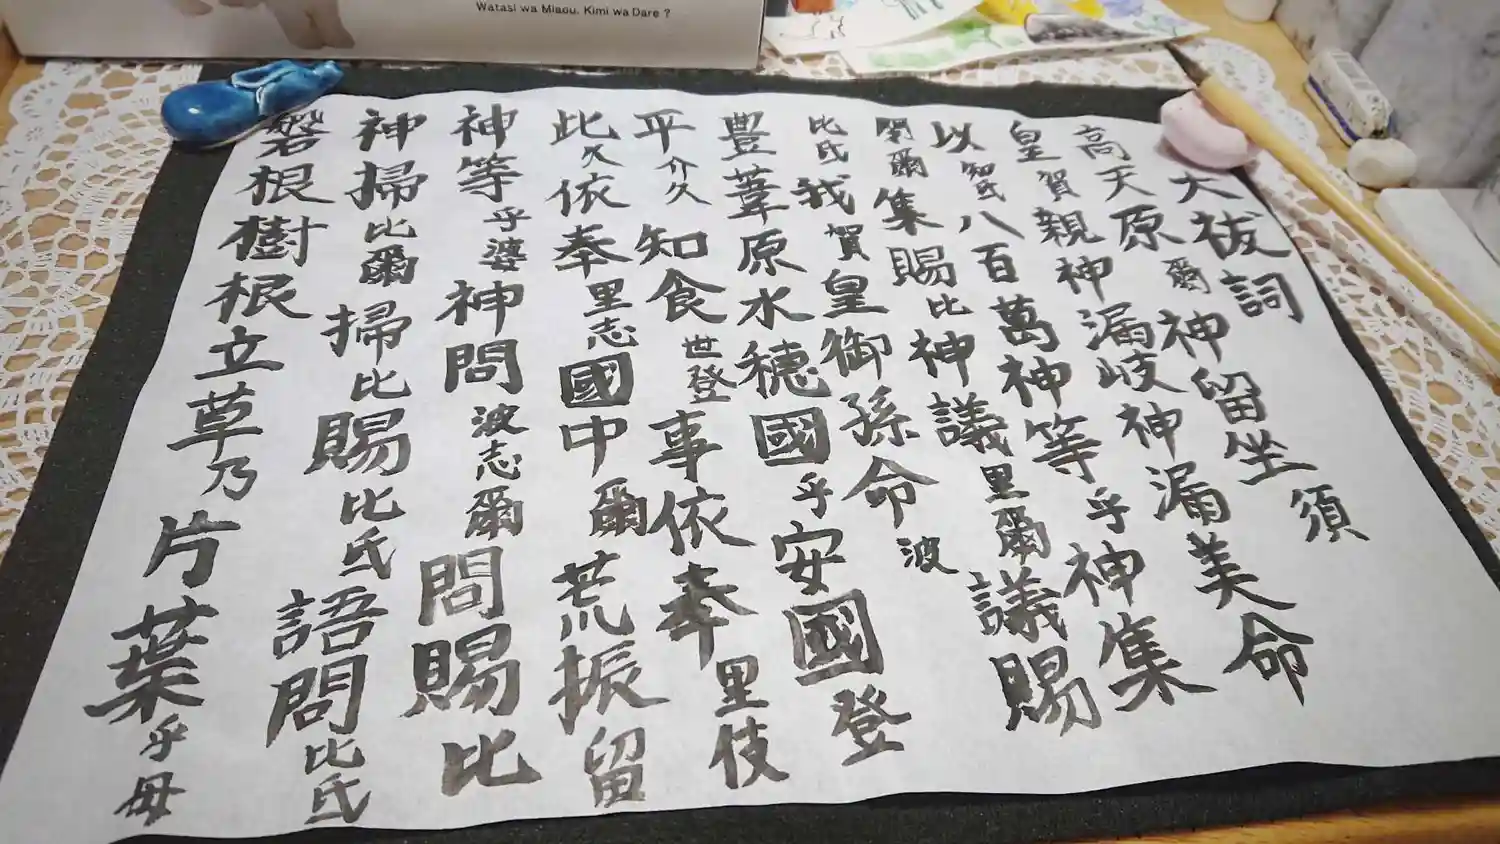 Watasi wa Miaou. Kimi wa Dare ?
大祓詞
高天原爾神留坐須
皇賀親神漏岐神漏美命
以知氐八百萬神等乎神集
閇爾集賜比神議里爾議賜
比氐我賀皇御孫命波
豊葦原水穂國乎安國登
平介久知食世登事依奉里伎
此久依奉里志國中爾荒振留
神等乎婆神問波志爾問賜比
神掃比爾掃比賜比氐語問比氐
磐根樹根立草乃片葉乎母